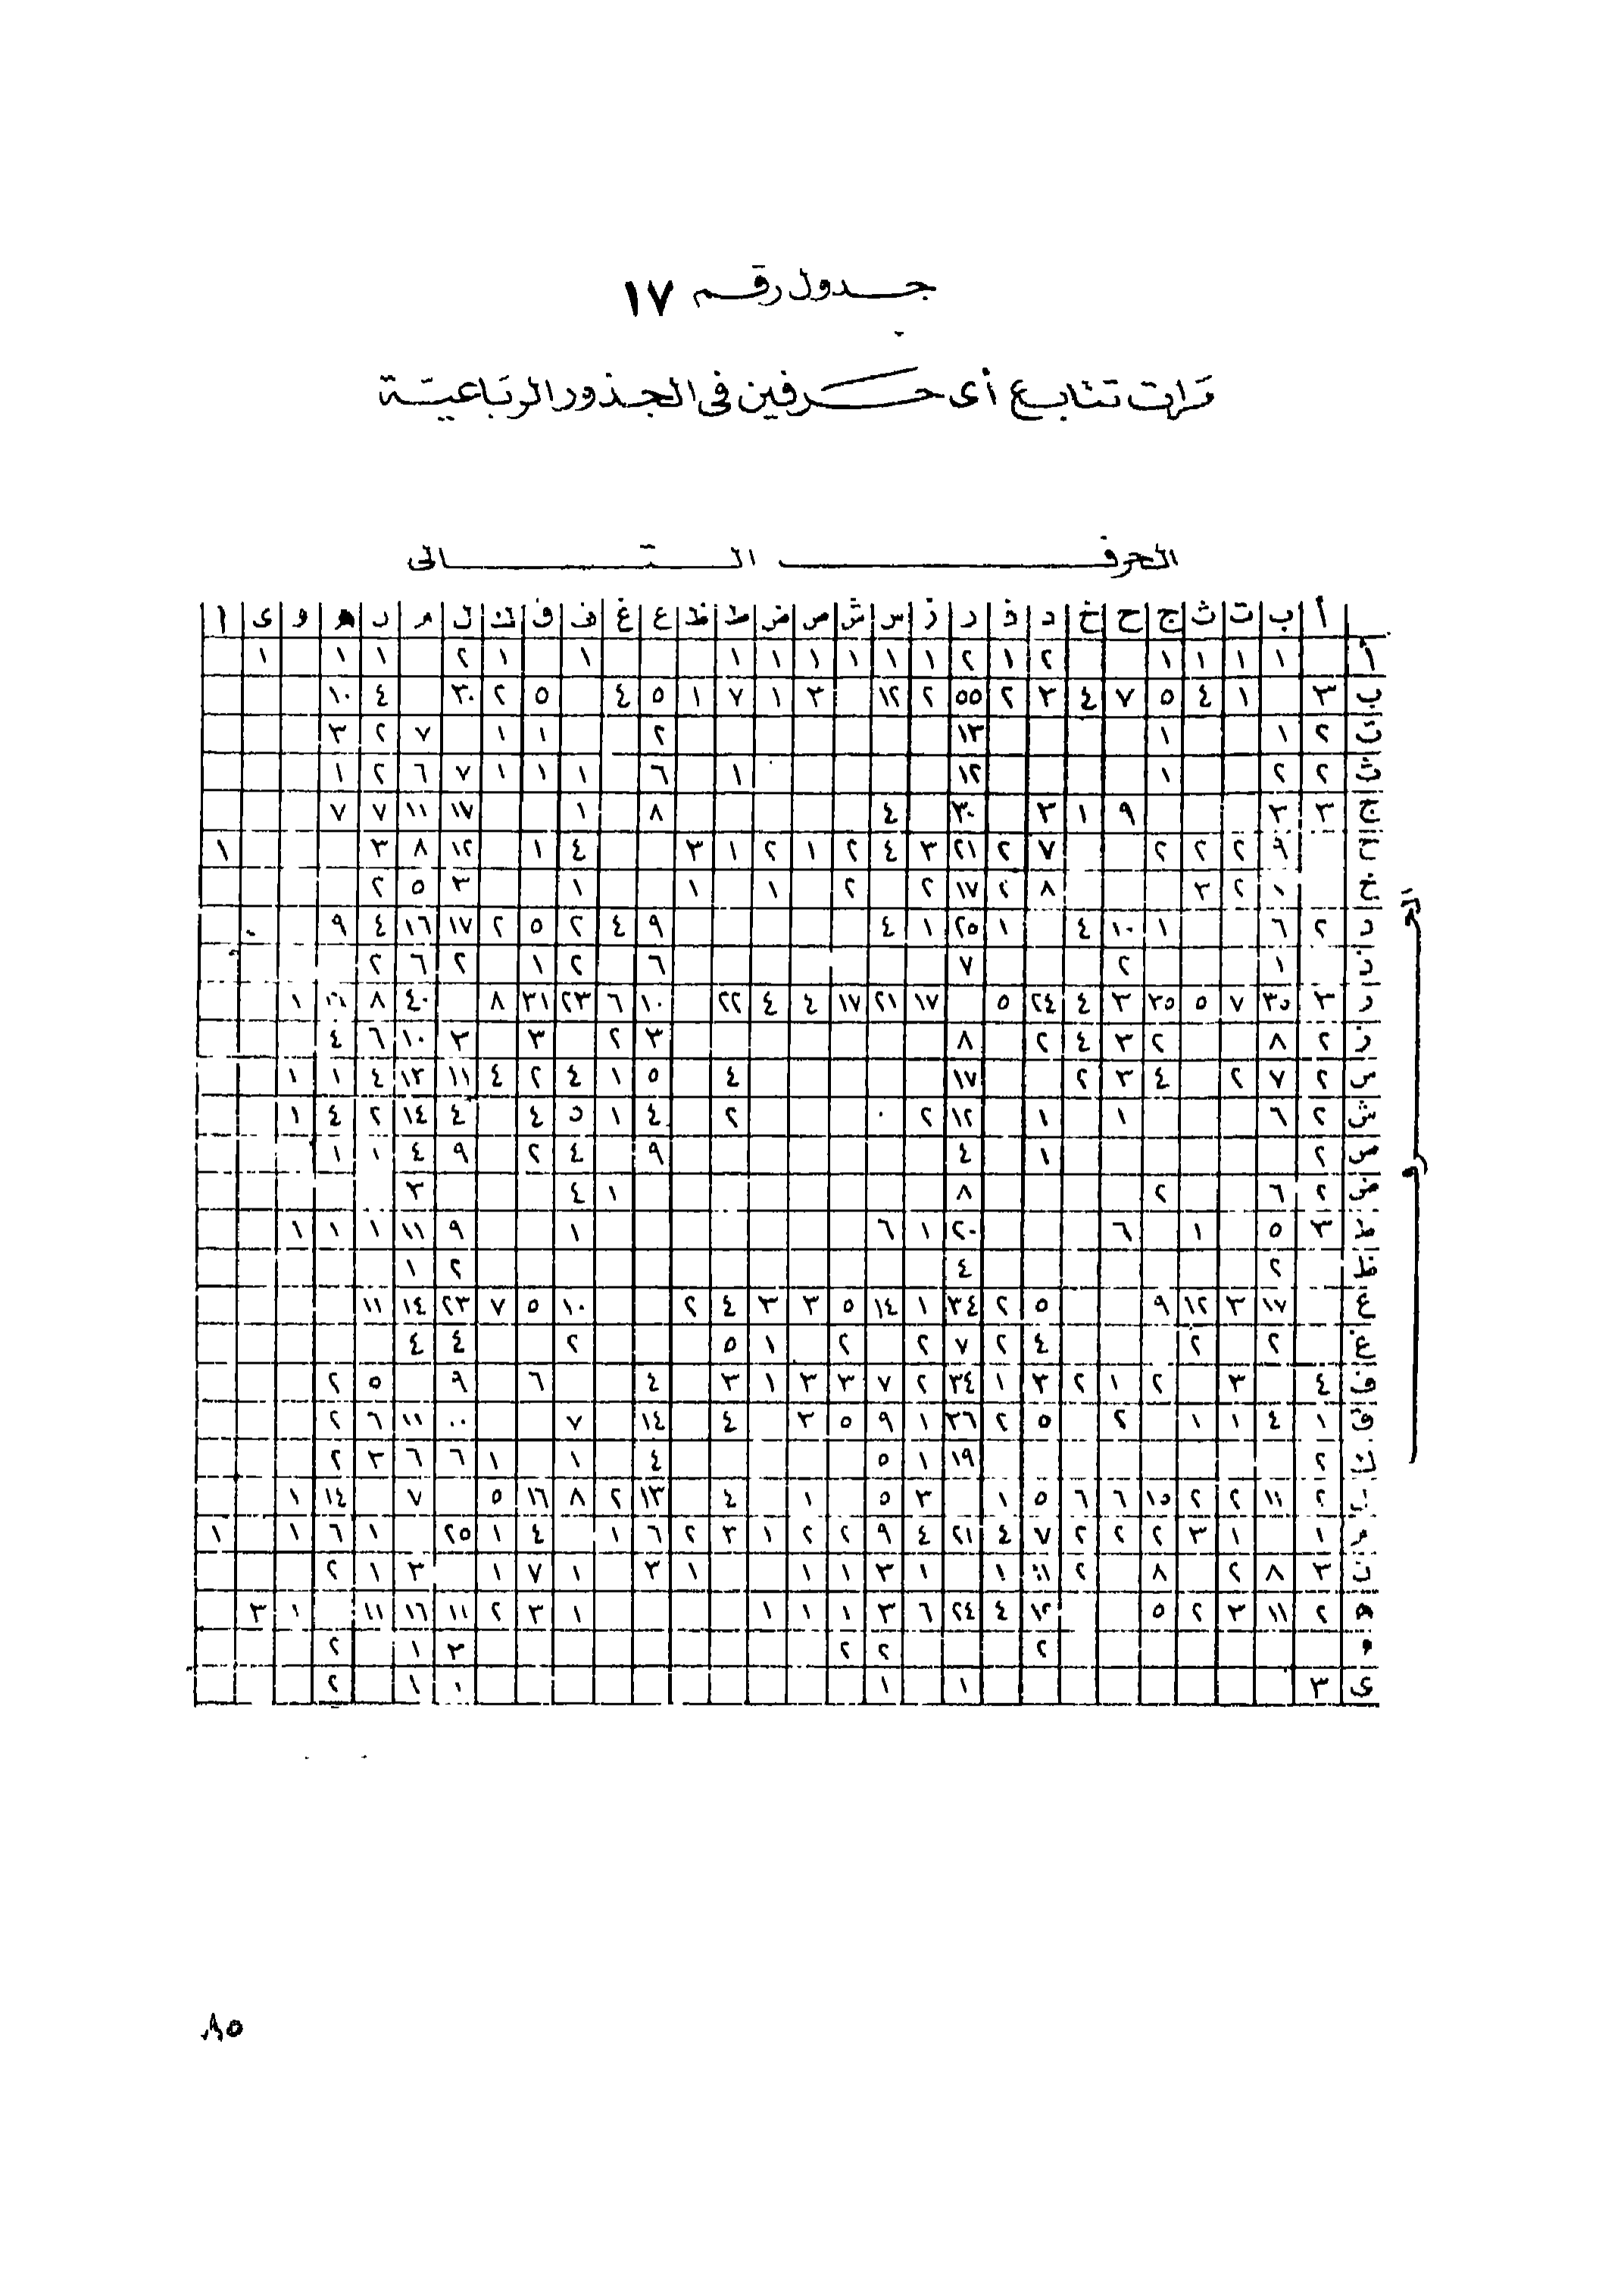 جدول رقم ١٧
مرات تتابع أى حرفين فى الجذور الرباعية
الحرف التالى
أ ب ت ث ج ح خ د ذ ر ز س ش ص ض ط ظ ع غ ف ق ك ل م ن ه و ى ا
أ ١ ١ ١ ١ ٢ ١ ٢ ١ ١ ١ ١ ١ ١ ١ ١ ٢ ١ ١ ١
ب ٣ ١ ٤ ٥ ٧ ٤ ٣ ٢ ٥٥ ٢ ١٢ ٣ ١ ٧ ١ ٥ ٤ ٥ ٢ ٣٠ ٤ ١٠
ت ٢ ١ ١ ١٣ ٢ ١ ١ ٧ ٢ ٣
ث ٢ ٢ ١ ١٢ ١ ٦ ١ ١ ١ ٧ ٦ ٢ ١
ج ٣ ٣ ٩ ١ ٣ ٣٠ ٤ ٨ ١ ١٧ ١١ ٧ ٧
ح ٩ ٢ ٢ ٢ ٧ ٢ ٢١ ٣ ٤ ٢ ١ ٢ ١ ٣ ٤ ١ ١٢ ٨ ٣ ١
خ ١ ٢ ٣ ٨ ٢ ١٧ ٢ ٢ ١ ١ ١ ٣ ٥ ٢
د ٢ ٦ ١ ١٠ ٤ ١ ٢٥ ١ ٤ ٩ ٤ ٢ ٥ ٢ ١٧ ١٦ ٤ ٩
ذ ١ ٢ ٧ ٦ ٢ ١ ٢ ٦ ٢
ر ٣ ٣٥ ٧ ٥ ٢٥ ٣ ٤ ٢٤ ٥ ١٧ ٢١ ١٧ ٤ ٤ ٢٢ ١٠ ٦ ٢٣ ٢١ ٨ ٤٠ ٨ ١
ز ٢ ٨ ٢ ٣ ٤ ٢ ٨ ٣ ٢ ٣ ٣ ١٠ ٦ ٤
س ٢ ٧ ٢ ٤ ٣ ٢ ١٧ ٤ ٥ ١ ٤ ٢ ٤ ١١ ١٣ ٤ ١ ١
ش ٢ ٦ ١ ١ ١٢ ٢ ٢ ٤ ١ ٥ ٤ ٤ ١٤ ٢ ٤ ١
ص ٢ ١ ٤ ٩ ٤ ٢ ٩ ٤ ١ ١
ض ٢ ٦ ٢ ٨ ١ ٤ ٣
ط ٣ ٥ ١ ٦ ٢٠ ١ ٦ ١ ٩ ١١ ١ ١ ١
ظ ٢ ٤ ٢ ١
ع ١٧ ٣ ١٢ ٩ ٥ ٢ ٣٤ ١ ١٤ ٥ ٣ ٣ ٤ ٢ ١٠ ٥ ٧ ٢٣ ١٤ ١١
غ ٢ ٢ ٤ ٢ ٧ ٢ ٢ ١ ٥ ٢ ٤ ٤
ف ٤ ٣ ٢ ١ ٢ ٣ ١ ٣٤ ٢ ٧ ٣ ٣ ١ ٣ ٤ ٦ ٩ ٥ ٢
ق ١ ٤ ١ ١ ٢ ٥ ٢ ٣٦ ١ ٩ ٥ ٣ ٤ ١٤ ٧ ١١ ٦ ٢
ك ٢ ١٩ ١ ٥ ٤ ١ ١ ٦ ٦ ٣ ٢
ل ٢ ١١ ٢ ٢ ١٥ ٦ ٦ ٥ ١ ٣ ٥ ١ ٤ ١٣ ٢ ٨ ١٦ ٥ ٧ ١٤ ١
م ١ ١ ٣ ٢ ٢ ٢ ٧ ٤ ٢١ ٤ ٩ ٢ ٢ ١ ٣ ٢ ٦ ١ ٤ ١ ٢٥ ١ ٦ ١ ١
ن ٣ ٨ ٢ ٨ ٢ ١١ ١ ١ ٣ ١ ١ ١ ٣ ١ ٧ ١ ٣ ١ ٢
ه ٢ ١١ ٣ ٢ ٥ ١٢ ٤ ٢٤ ٦ ٣ ١ ١ ١ ١ ٣ ٢ ١١ ١٦ ١١ ١ ٣
و ٢ ٢ ٢ ٣ ١ ٢
ى ٣ ١ ١ ١ ١ ٢
٨٥